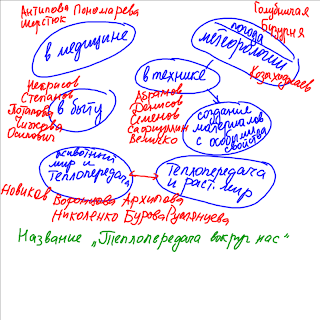 Антипова Пономарева
Шерстюк
Голубничая
Бурдуня
в медицине
погода
метеорологии
Казахадзаев
в технике
Некрасов
Степанов
Потапова
Чижова
Осипович
в быту
Абрамов
Денисов
Семенов
Сайфуллин
Величко
создание
материалов
с особыми
свойства
животный
мир и
теплопередача
Теплопередача
и раст. мир
Новиков Воронцова Архипова
Николенко Бурова Румянцева
Название „Теплопередача вокруг нас"